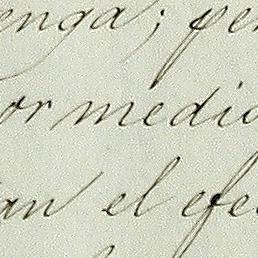 enga; per
or medio
an el efe